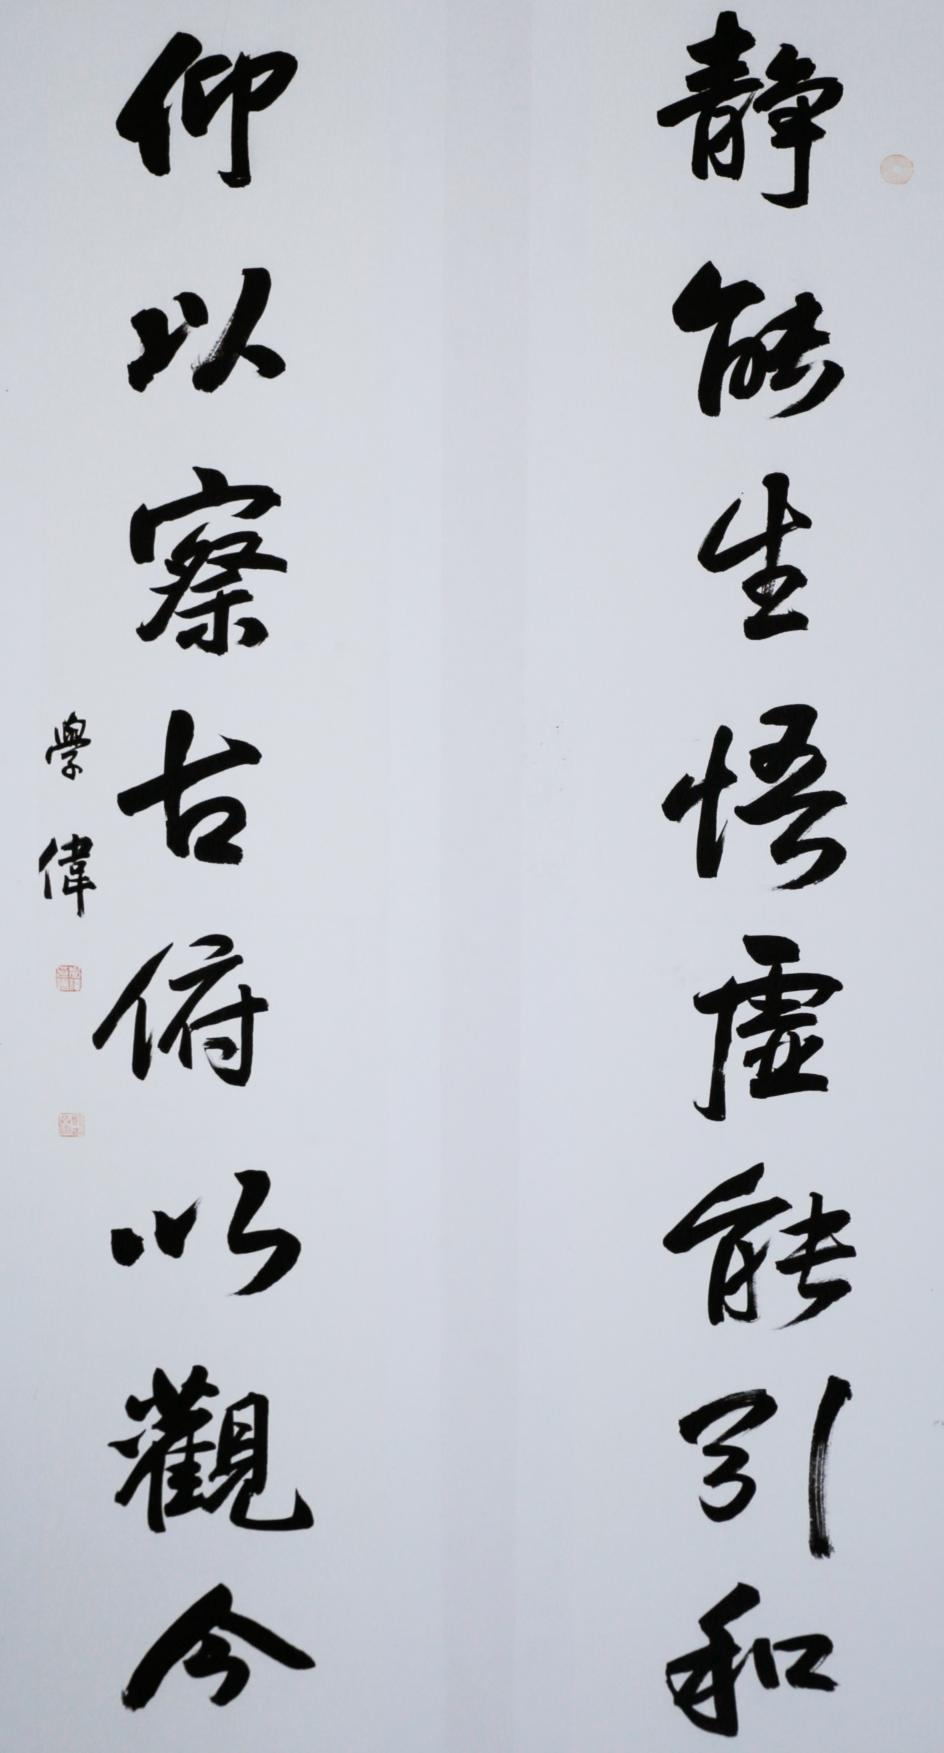 静能生悟虚能引和
仰以察古俯以觀今
學偉